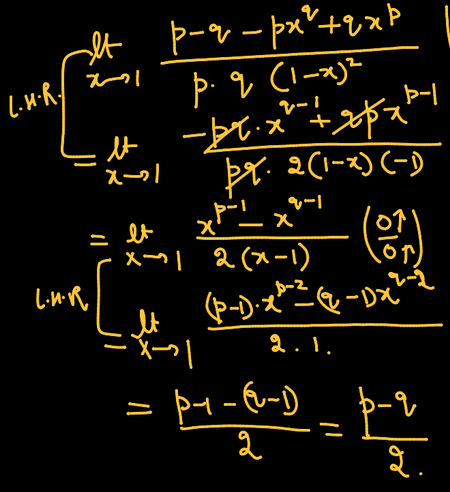 lt x→1 (p-q-px^q+qx^p)/(p.q (1-x)^2)
L.H.R.
= lt x→1 (-pq.x^(q-1)+qp x^(p-1))/(pq. 2(1-x)(-1))
= lt x→1 (x^(p-1) - x^(q-1))/(2(x-1)) (0↑/0↑)
L.H.R
= lt x→1 ((p-1).x^(p-2) - (q-1)x^(q-2))/(2.1.)
= (p-1-(q-1))/2 = (p-q)/2.